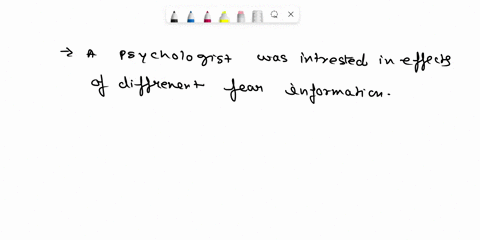 → A psychologist was intrested in effects
of diffrenent fear information.